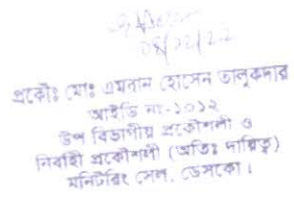 ০৪/০২/২২
প্রকৌঃ মোঃ এমরান হোসেন তালুকদার
আইডি নং-১০১২
উপ বিভাগীয় প্রকৌশলী ও
নির্বাহী প্রকৌশলী (অতিঃ দায়িত্ব)
মনিটরিং সেল, ডেসকো।